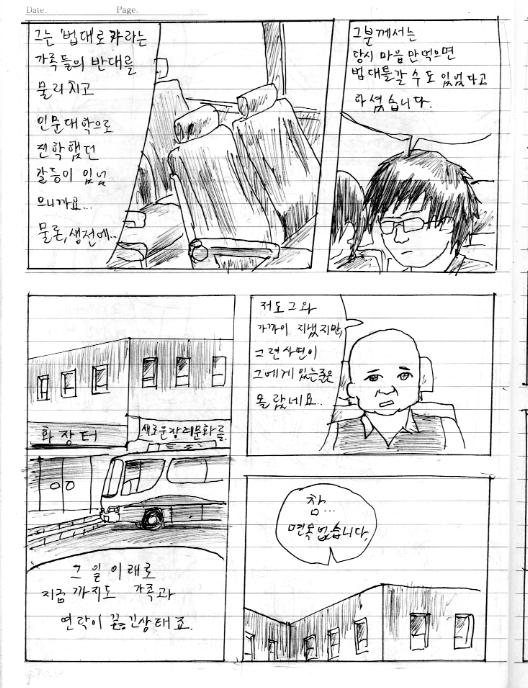 Date.
Page.
그는 '법대로 가라는
가족들의 반대를
물리치고
인문대학으로
전학했던
갈등이 있었
으니까요...
물론, 생전에..
그분께서는
당시 마음만 먹으면
법대를갈 수도 있었다고
하셨습니다.
저도 그와
가까이 지냈지만,
그런사연이
그에게 있는줄은
몰랐네요..
화장터
새로운장례문화를
그 일 이래로
지금 까지도 가족과
연락이 끊긴상태죠.
참...
면목없습니다.